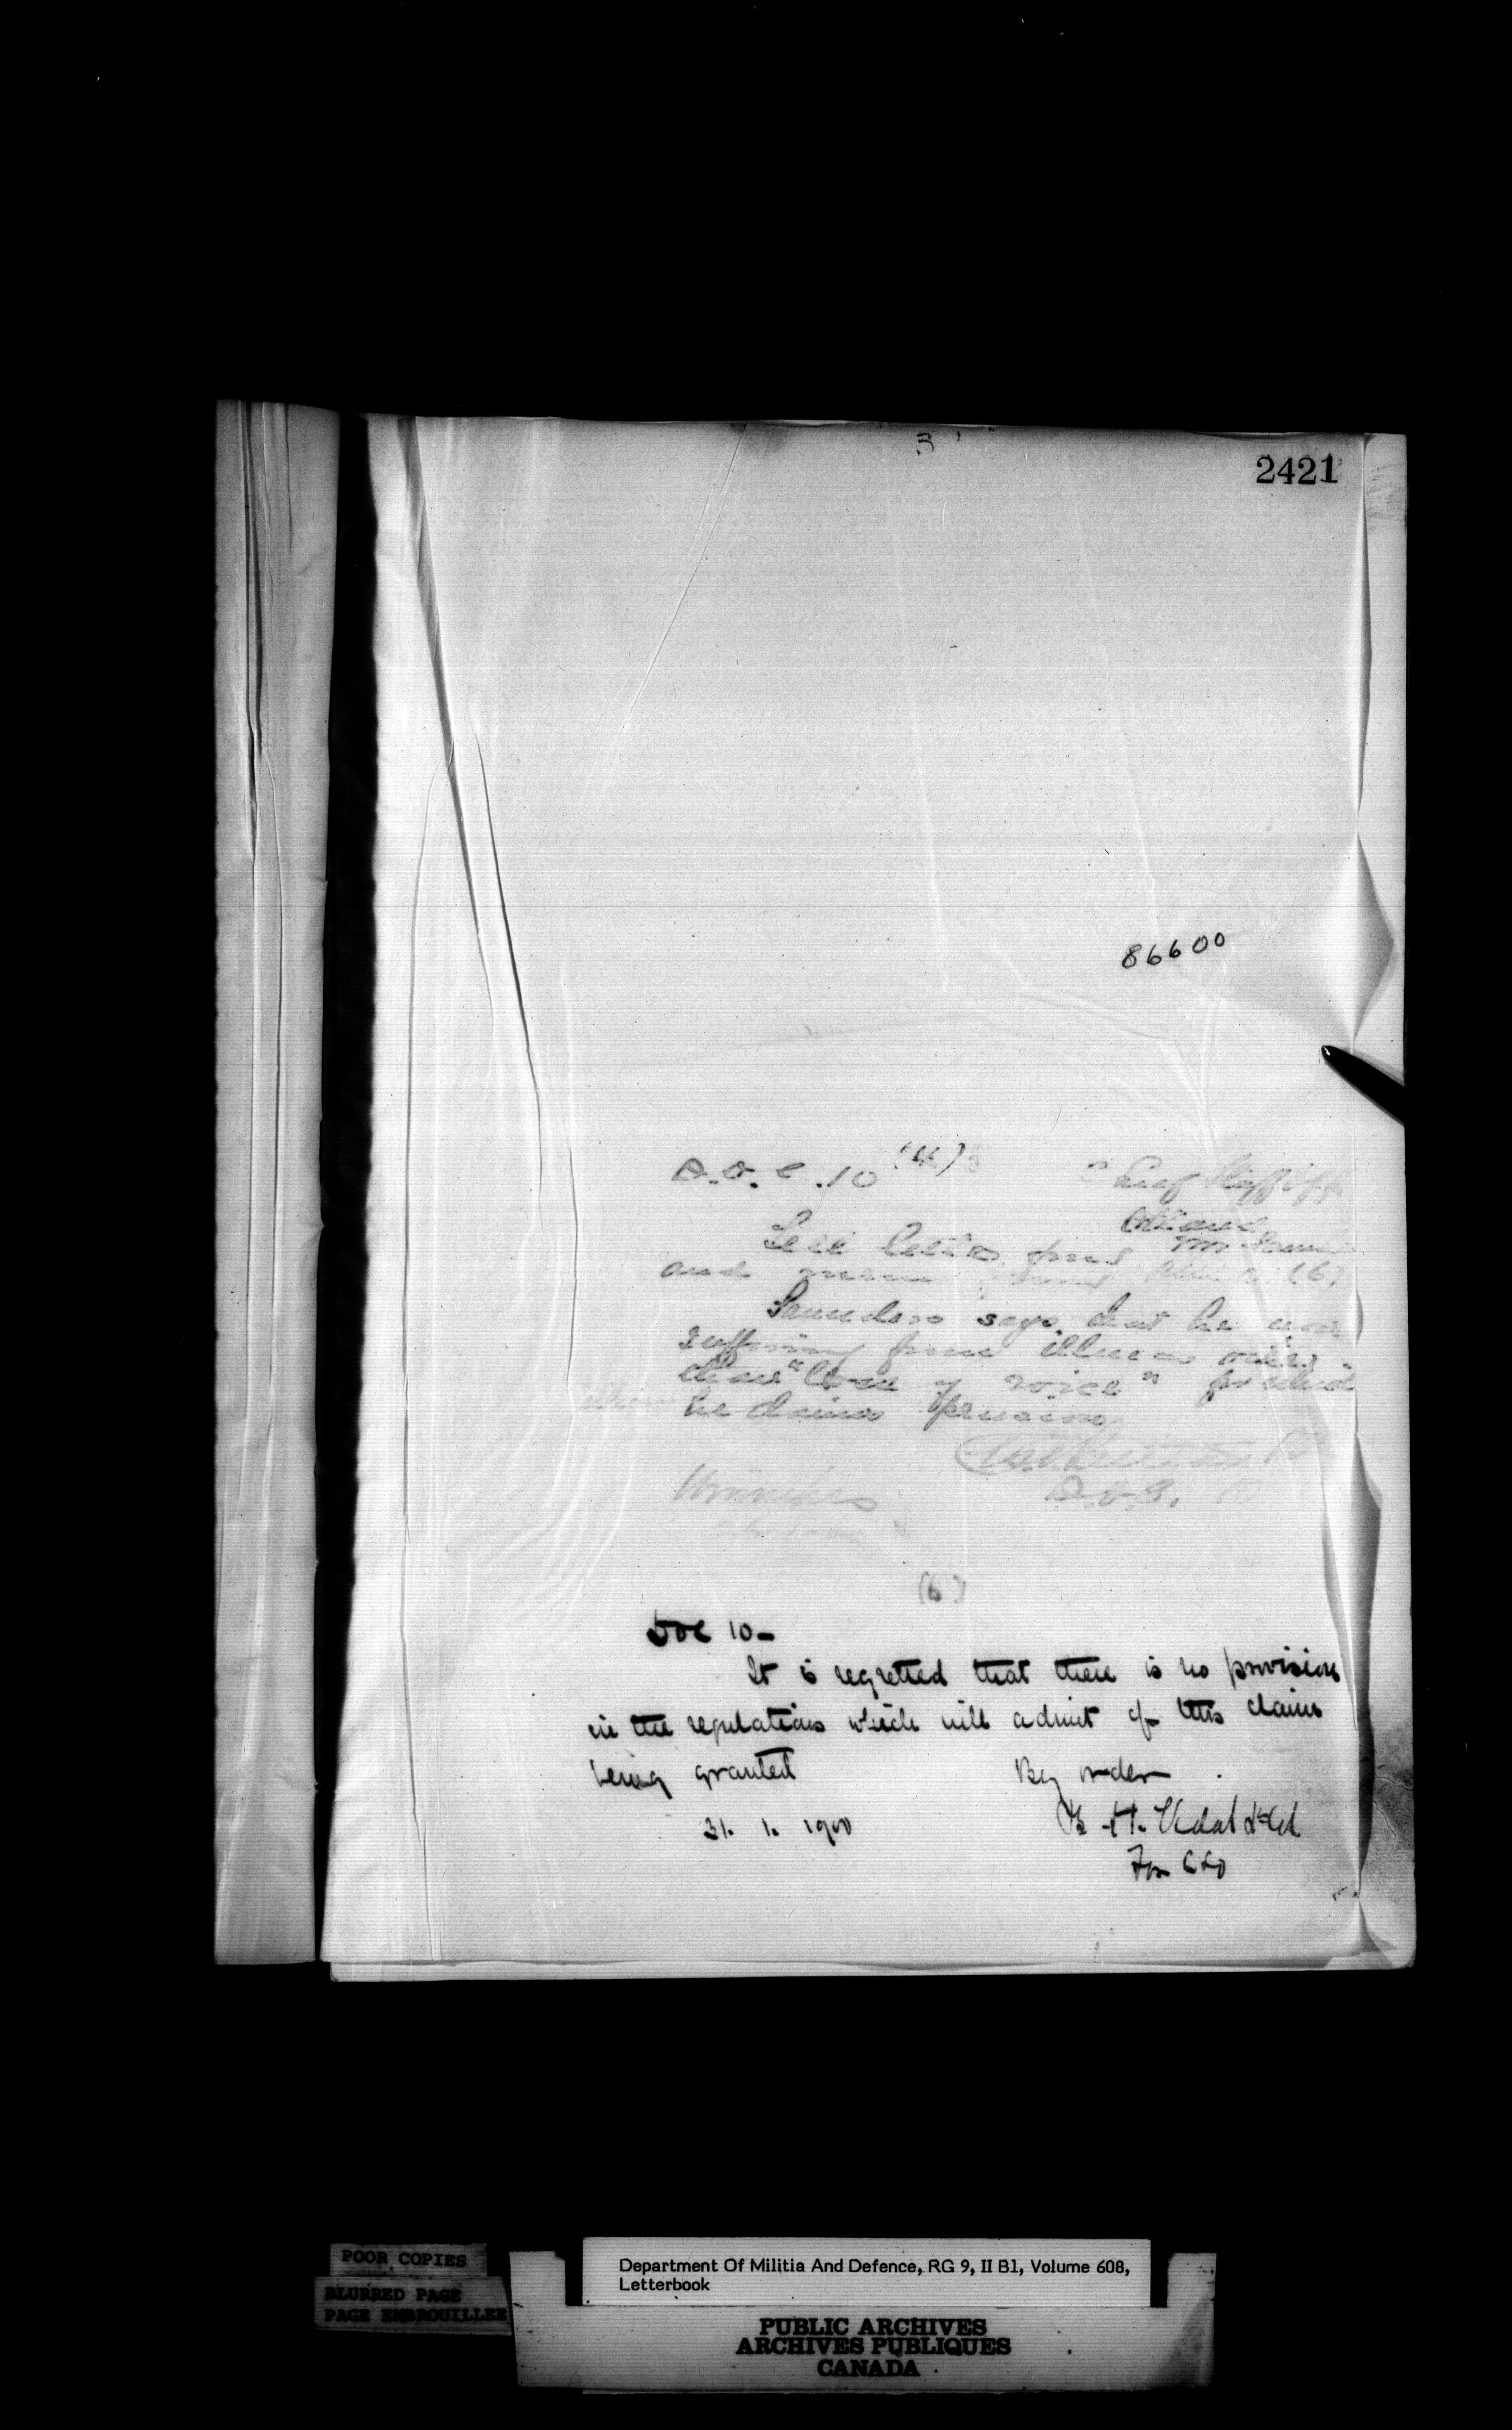 3
2421
86600
D.O.C. 10
Chief Staff Off
Ottawa
letter from Mr.
and (6)
Saunders says that he was
suffering from illness other
than "loss of voice" for which
he claims pension
Winnipeg
D.O.C. 10
(6)
DOC 10-
It is regretted that there is no provision
in the regulations which will admit of this claim
being granted
By order
31. 1. 1900
B. H. Vidal Lt Col
For CSO
POOR COPIES
BLURRED PAGE
PAGE EMBROUILLEE
Department Of Militia And Defence, RG 9, II B1, Volume 608,
Letterbook
PUBLIC ARCHIVES
ARCHIVES PUBLIQUES
CANADA